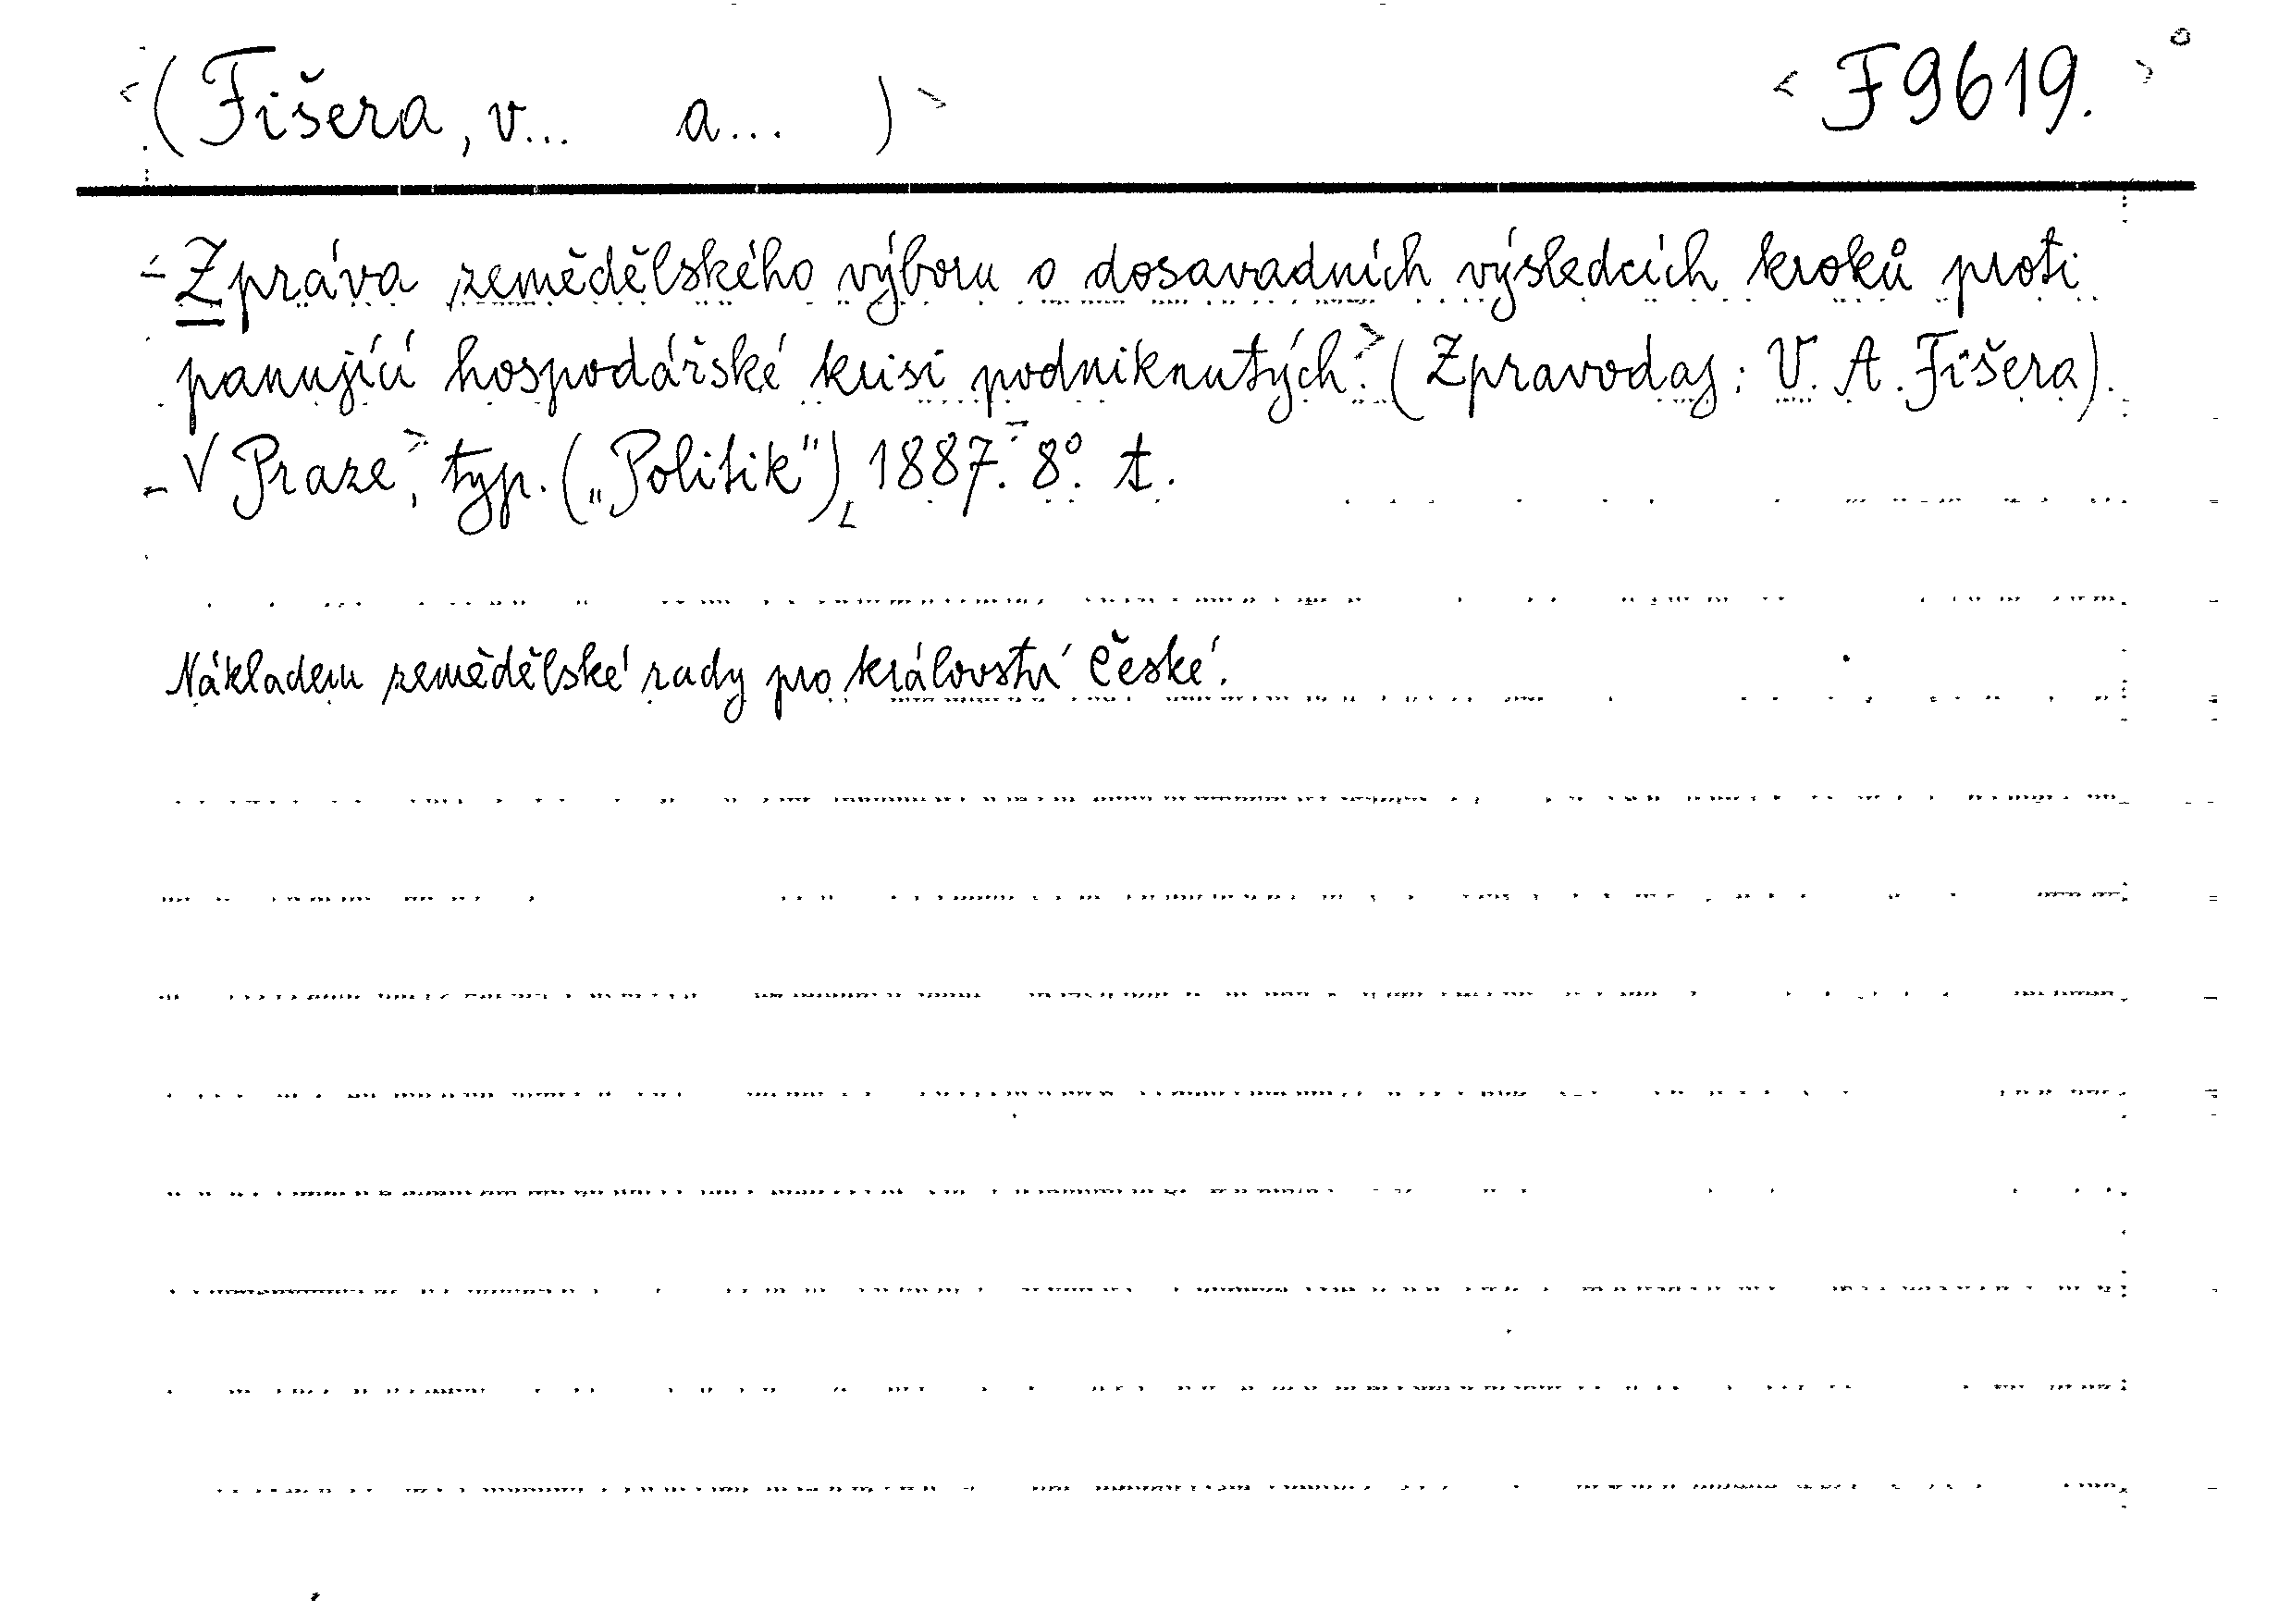 (Fišera, v... a... ) F 9619.
Zpráva zemědělského výboru o dosavadních výsledcích kroků proti
panující hospodářské krisi podniknutých. (Zpravodaj: V. A. Fišera).
V Praze, typ. („Politik") 1887. 8°. t.
Nákladem zemědělské rady pro království České.